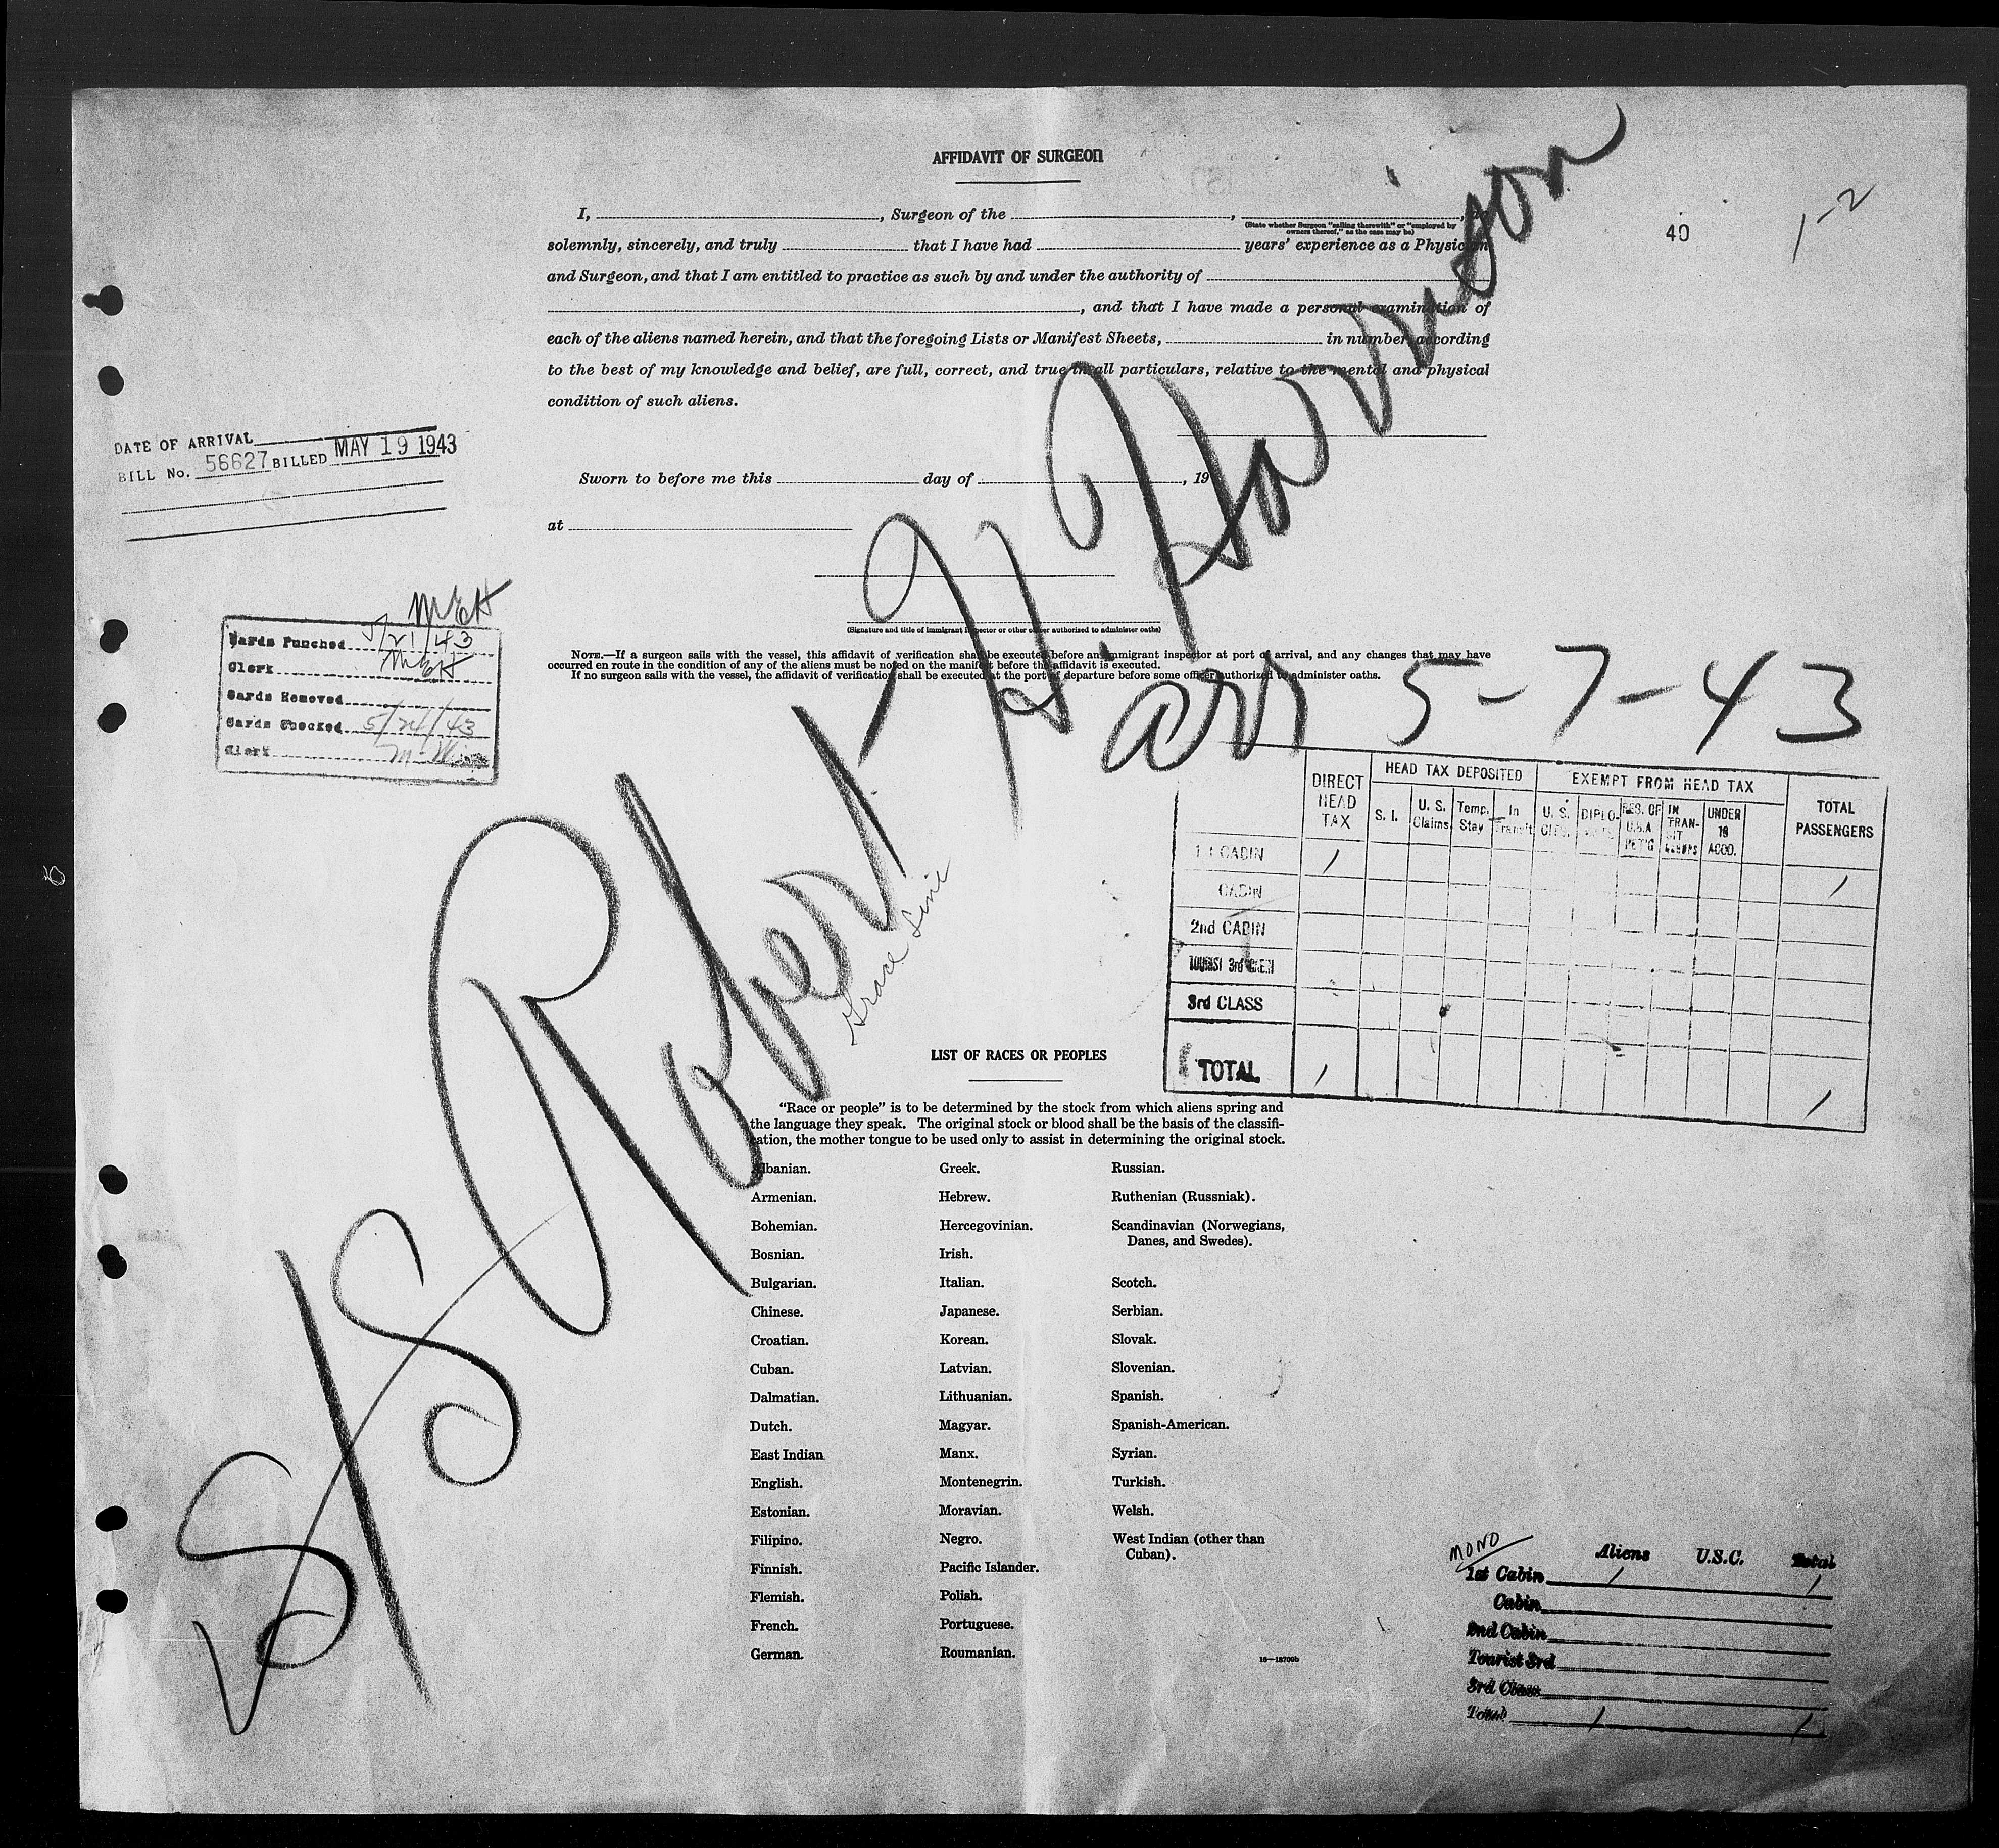 AFFIDAVIT OF SURGEON
I, , Surgeon of the , ,
(State whether Surgeon "sailing therewith" or "employed by
owners thereof," as the case may be)
solemnly, sincerely, and truly that I have had years' experience as a Physician
and Surgeon, and that I am entitled to practice as such by and under the authority of
, and that I have made a personal examination of
each of the aliens named herein, and that the foregoing Lists or Manifest Sheets, in number, according
to the best of my knowledge and belief, are full, correct, and true in all particulars, relative to the mental and physical
condition of such aliens.
40
1-2
DATE OF ARRIVAL
BILL No. 56627 BILLED MAY 19 1943
Sworn to before me this day of , 19
at
(Signature and title of immigrant inspector or other officer authorized to administer oaths)
NOTE.—If a surgeon sails with the vessel, this affidavit of verification shall be executed before an immigrant inspector at port of arrival, and any changes that may have
occurred en route in the condition of any of the aliens must be noted on the manifest before the affidavit is executed.
If no surgeon sails with the vessel, the affidavit of verification shall be executed at the port of departure before some officer authorized to administer oaths.
Cards Punched 5/21/43
Clerk
Cards Removed
Cards Checked 5/24/43
Clerk
S/S Robert H. Harrison
arr 5-7-43
Grace Line
DIRECT HEAD TAX
HEAD TAX DEPOSITED
EXEMPT FROM HEAD TAX
TOTAL PASSENGERS
S. I.
U. S. Claims
Temp. Stay
In Transit
U. S.
DIPLO-
RES. OF U.S.A
IN TRAN-SIT
UNDER 16 ACCO.
CABIN 1 1
CABIN
2nd CABIN
TOURIST 3rd
3rd CLASS
TOTAL 1 1
LIST OF RACES OR PEOPLES
"Race or people" is to be determined by the stock from which aliens spring and
the language they speak. The original stock or blood shall be the basis of the classifi-
cation, the mother tongue to be used only to assist in determining the original stock.
Albanian.
Armenian.
Bohemian.
Bosnian.
Bulgarian.
Chinese.
Croatian.
Cuban.
Dalmatian.
Dutch.
East Indian
English.
Estonian.
Filipino.
Finnish.
Flemish.
French.
German.
Greek.
Hebrew.
Hercegovinian.
Irish.
Italian.
Japanese.
Korean.
Latvian.
Lithuanian.
Magyar.
Manx.
Montenegrin.
Moravian.
Negro.
Pacific Islander.
Polish.
Portuguese.
Roumanian.
Russian.
Ruthenian (Russniak).
Scandinavian (Norwegians,
Danes, and Swedes).
Scotch.
Serbian.
Slovak.
Slovenian.
Spanish.
Spanish-American.
Syrian.
Turkish.
Welsh.
West Indian (other than
Cuban).
16—18709b
MONO
Aliens U.S.C. Total
1st Cabin 1 1
Cabin
2nd Cabin
Tourist 3rd
3rd Class
Total 1 1